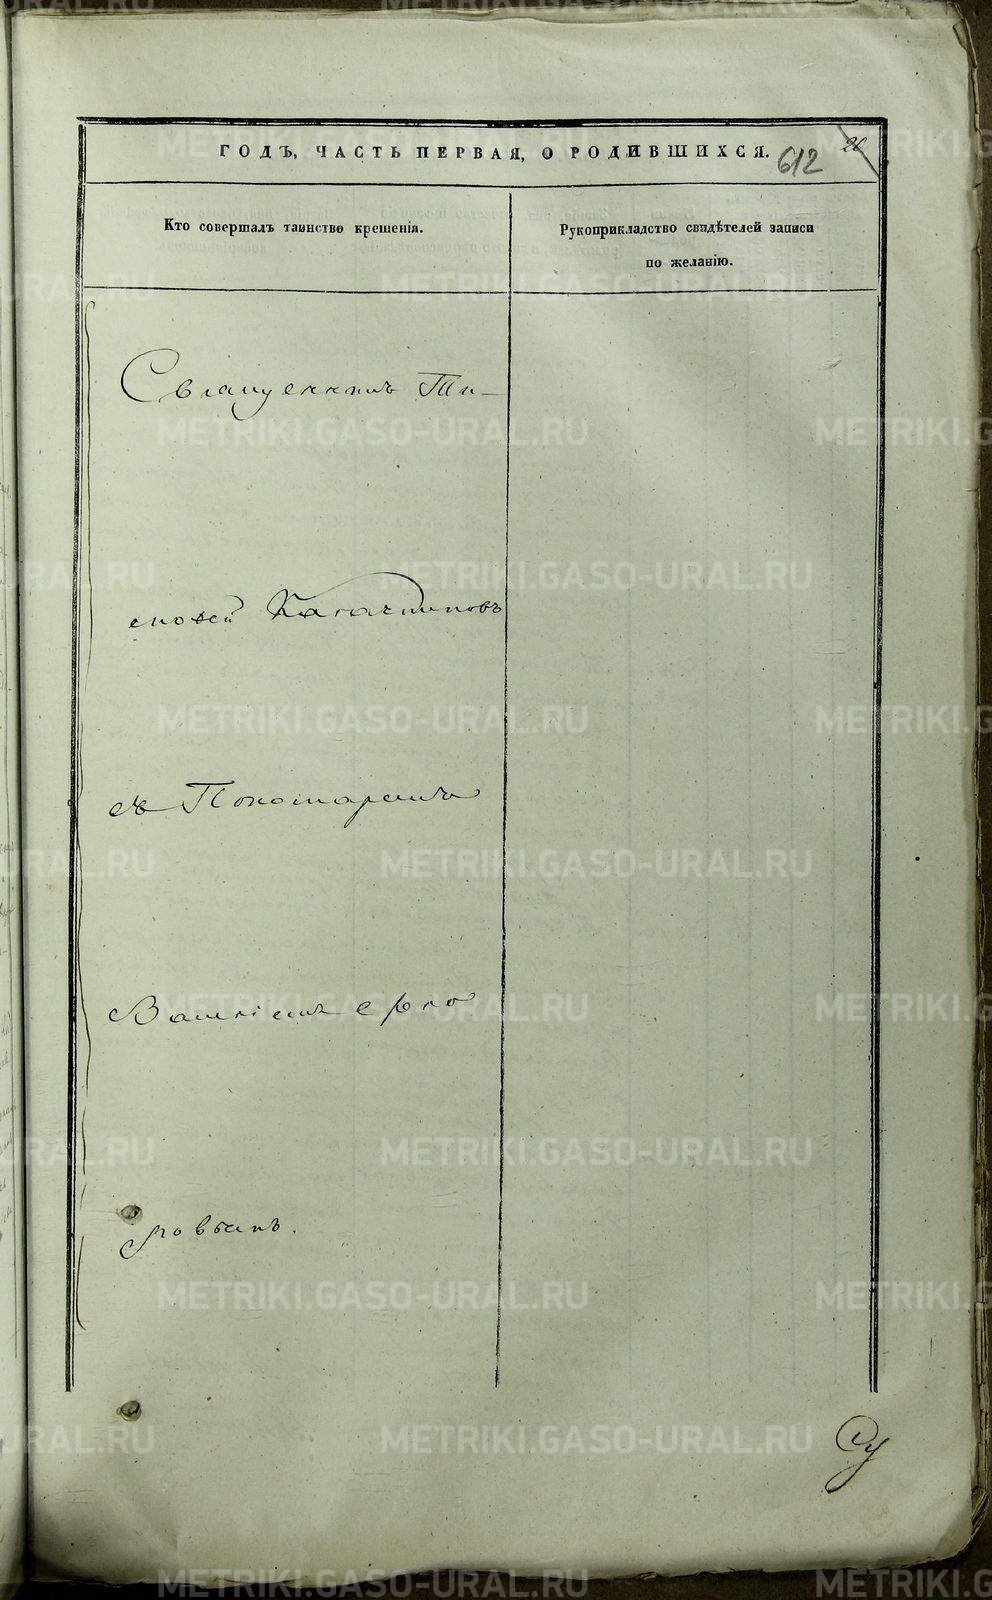 ГОДЪ, ЧАСТЬ ПЕРВАЯ, О РОДИВШИХСЯ.
612
20
Кто совершалъ таинство крещенія.
Рукоприкладство свидѣтелей записи
по желанію.
Священникъ Ти-
моѳей
съ Пономаремъ
ровымъ.
METRIKI.GASO-URAL.RU